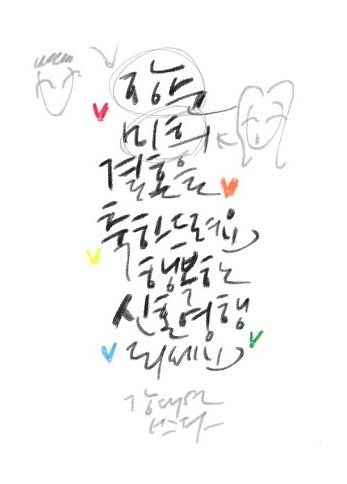 장우
미희
결혼을
축하드려요
행복한
신혼여행
되세요
강대연
쓰다